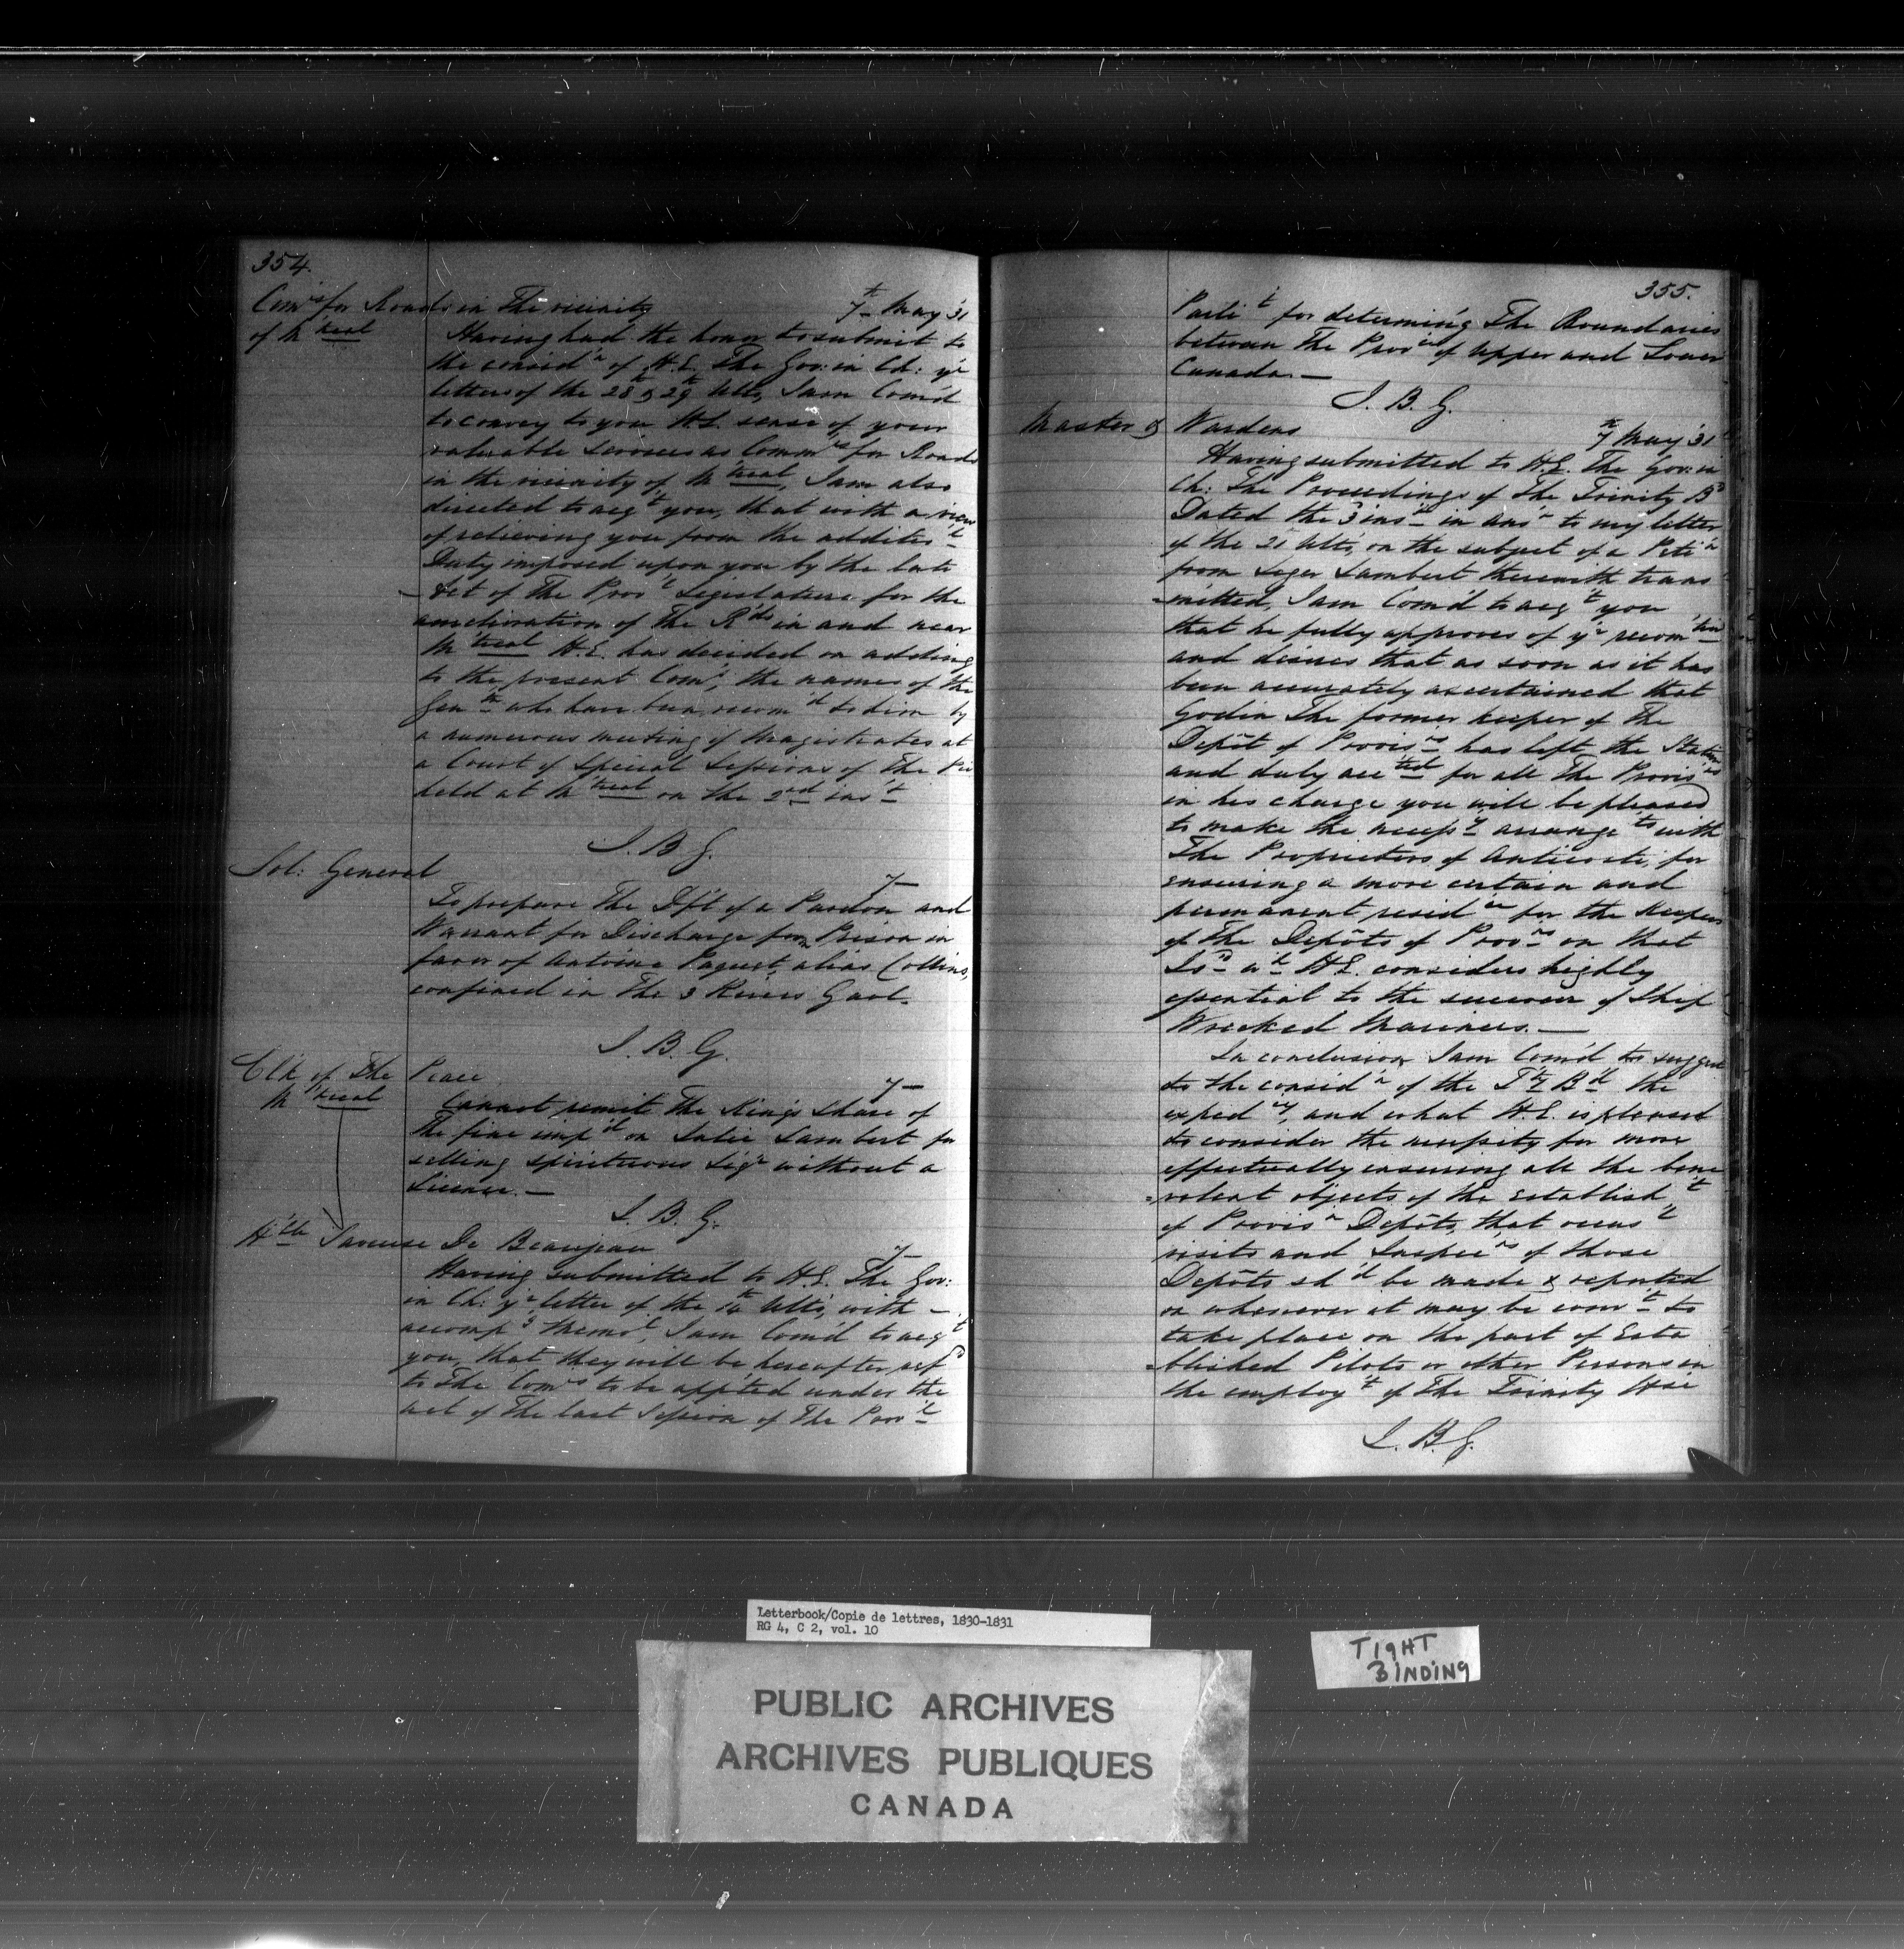 354.
Com'rs for Roads in The vicinity 7th May '31
of M'treal Having had the honor to submit to
the consid'n of H.E. The Gov: in Ch: y'r
letters of the 28 & 29th Ulto, I am Com'd
to convey to you H.E. sense of your
valuable Services as Comm'rs for Roads
in the vicinity of M'treal, I am also
directed to acq't you, that with a view
of relieving you from the addition'l
Duty imposed upon you by the late
Act of The Prov'l Legislature for the
amelioration of The R'ds in and near
M'treal H.E. has decided on adding
to the present Com'n, the names of the
Gen'tn who have been recom'd to him by
a numerous meeting of Magistrates at
a Court of Special Sessions of The Pe
held at M'treal on the 2nd ins't
J. B. G.
Sol: General 7
To prepare the D'ft of a Pardon and
Warrant for Discharge from Prison in
favor of Antoine Paquet, alias Collins,
confined in The 3 Rivers Gaol.
J. B. G.
Clk of The Peace 7
M'treal Cannot remit The King's Share of
The fine imp'd on Julie Lambert for
selling spirituous Liq'r without a
License.
J. B. G.
H'ble Saveuse De Beaujeau 7
Having submitted to H.E. The Gov:
in Ch: y'r letter of the 14th Ulto, with
accomp'g Memo'l, I am Com'd to acq't
you, that they will be hereafter ref'd
to The Com'rs to be app'ted under the
act of The last Session of The Prov'l
355.
Parli't for determin'g The Boundaries
between The Prov'ces of Upper and Lower
Canada.
J. B. G.
Master & Wardens 7th May '31
Having submitted to H.E. The Gov: in
Ch: The Proceedings of The Trinity B'd
Dated the 3 ins't in ans'r to my letter
of the 21 Ulto, on the subject of a Peti'n
from Leger Lambert therewith trans
=mitted, I am Com'd to acq't you
that he fully approves of y'r recom'tion
and desires that as soon as it has
been accurately ascertained that
Godin The former keeper of The
Depôt of Provis'ns has left the Station
and duly acc'ted for all The Provis'ns
in his charge you will be pleased
to make the necess'y arrange'ts with
The Proprietors of Anticosti, for
ensuring a more certain and
permanent resid'ce for the Keepers
of The Depôts of Prov'ns on that
Is'd w'h H.E. considers highly
essential to the succour of Ship
Wrecked Mariners.
In conclusion I am Com'd to suggest
to the consid'n of the T'ty B'd the
exped'cy, and what H.E. is pleased
to consider the necessity for more
effectually ensuring all the bene
=volent objects of the establish't
of Provis'n Depôts, that occas'l
visits and Inspec'ns of those
Depôts sh'd be made & reported
on whenever it may be conv't to
take place on the part of Esta
=blished Pilots or other Persons in
the employ't of The Trinity H'se
J. B. G.
Letterbook/Copie de lettres, 1830-1831
RG 4, C 2, vol. 10
TIGHT
BINDING
PUBLIC ARCHIVES
ARCHIVES PUBLIQUES
CANADA